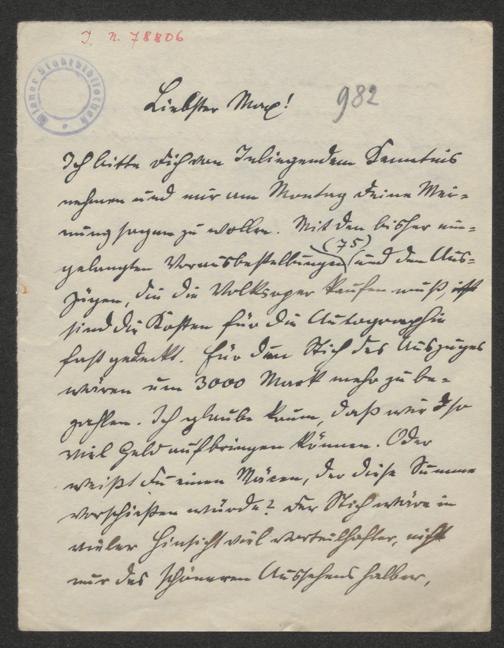 J. N. 78806
Wiener Stadtbibliothek
Liebster Max! 982
Ich bitte Dich von Inliegendem Kenntnis
nehmen und mir am Montag Deine Mei-
nung sagen zu wollen. Mit den bisher ein-
gelangten Vorausbestellungen (75) und den Aus-
zügen, die die Volksoper kaufen muß,
sind die Kosten für die Autographie
fast gedeckt. Für den Stich des Auszuges
wären um 3000 Mark mehr zu be-
zahlen. Ich glaube kaum, daß wir so
viel Geld aufbringen können. Oder
weißt Du einen Mäcen, der diese Summe
vorschießen würde? Der Stich wäre in
vieler Hinsicht viel vorteilhafter, nicht
nur des schöneren Aussehens halber,